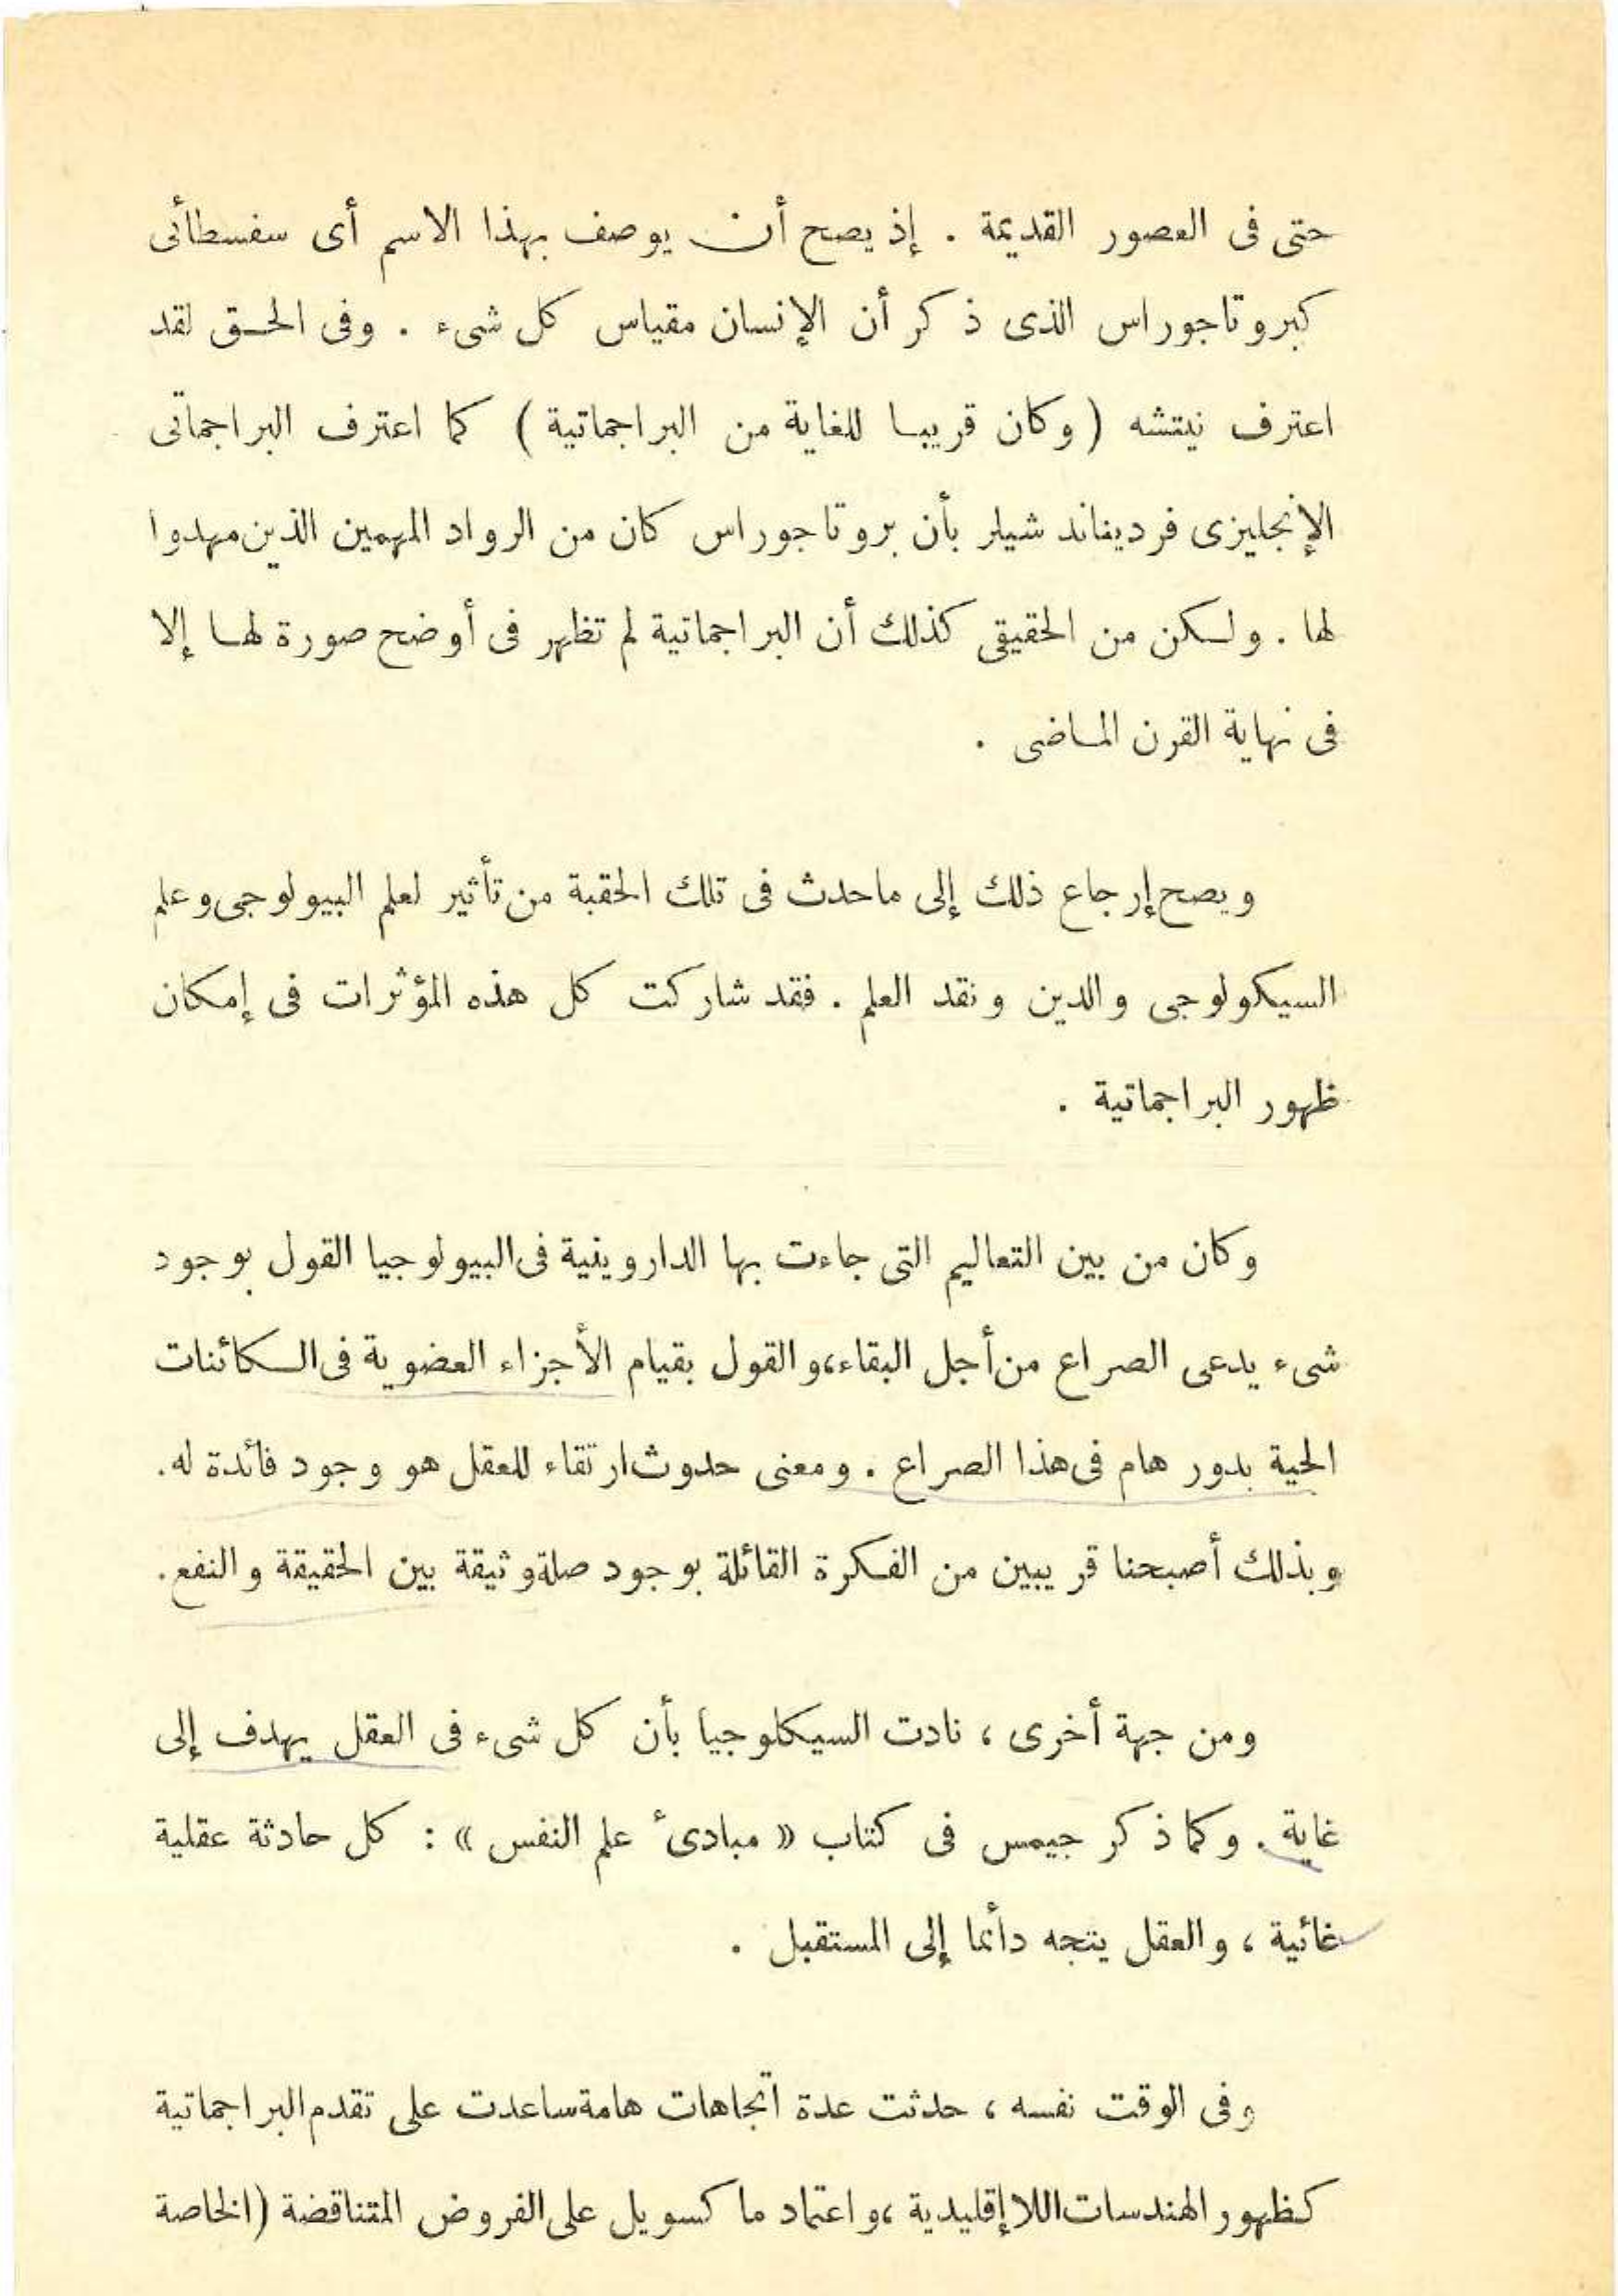 حتى فى العصور القديمة . إذ يصح أن يوصف بهذا الاسم أى سفسطائى
كبروتاجوراس الذى ذكر أن الإنسان مقياس كل شىء . وفى الحق لقد
اعترف نيتشه ( وكان قريبا للغاية من البراجماتية ) كما اعترف البراجماتى
الإنجليزى فرديناند شيلر بأن بروتاجوراس كان من الرواد المهمين الذين مهدوا
لها . ولكن من الحقيقى كذلك أن البراجماتية لم تظهر فى أوضح صورة لها إلا
فى نهاية القرن الماضى .
ويصح إرجاع ذلك إلى ماحدث فى تلك الحقبة من تأثير لعلم البيولوجى وعلم
السيكولوجى والدين ونقد العلم . فقد شاركت كل هذه المؤثرات فى إمكان
ظهور البراجماتية .
وكان من بين التعاليم التى جاءت بها الداروينية فى البيولوجيا القول بوجود
شىء يدعى الصراع من أجل البقاء، والقول بقيام الأجزاء العضوية فى الكائنات
الحية بدور هام فى هذا الصراع . ومعنى حدوث ارتقاء للعقل هو وجود فائدة له.
وبذلك أصبحنا قريبين من الفكرة القائلة بوجود صلة وثيقة بين الحقيقة والنفع.
ومن جهة أخرى ، نادت السيكلوجيا بأن كل شىء فى العقل يهدف إلى
غاية . وكما ذكر جيمس فى كتاب « مبادىء علم النفس » : كل حادثة عقلية
غائية ، والعقل يتجه دائما إلى المستقبل .
وفى الوقت نفسه ، حدثت عدة اتجاهات هامة ساعدت على تقدم البراجماتية
كظهور الهندسات اللا إقليدية ، واعتماد ماكسويل على الفروض المتناقضة (الخاصة